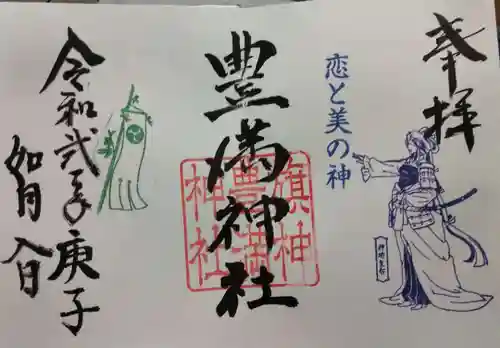 奉拝
恋と美の神
豊満神社
旗神
豊満
神社
令和弐年庚子
如月
入日